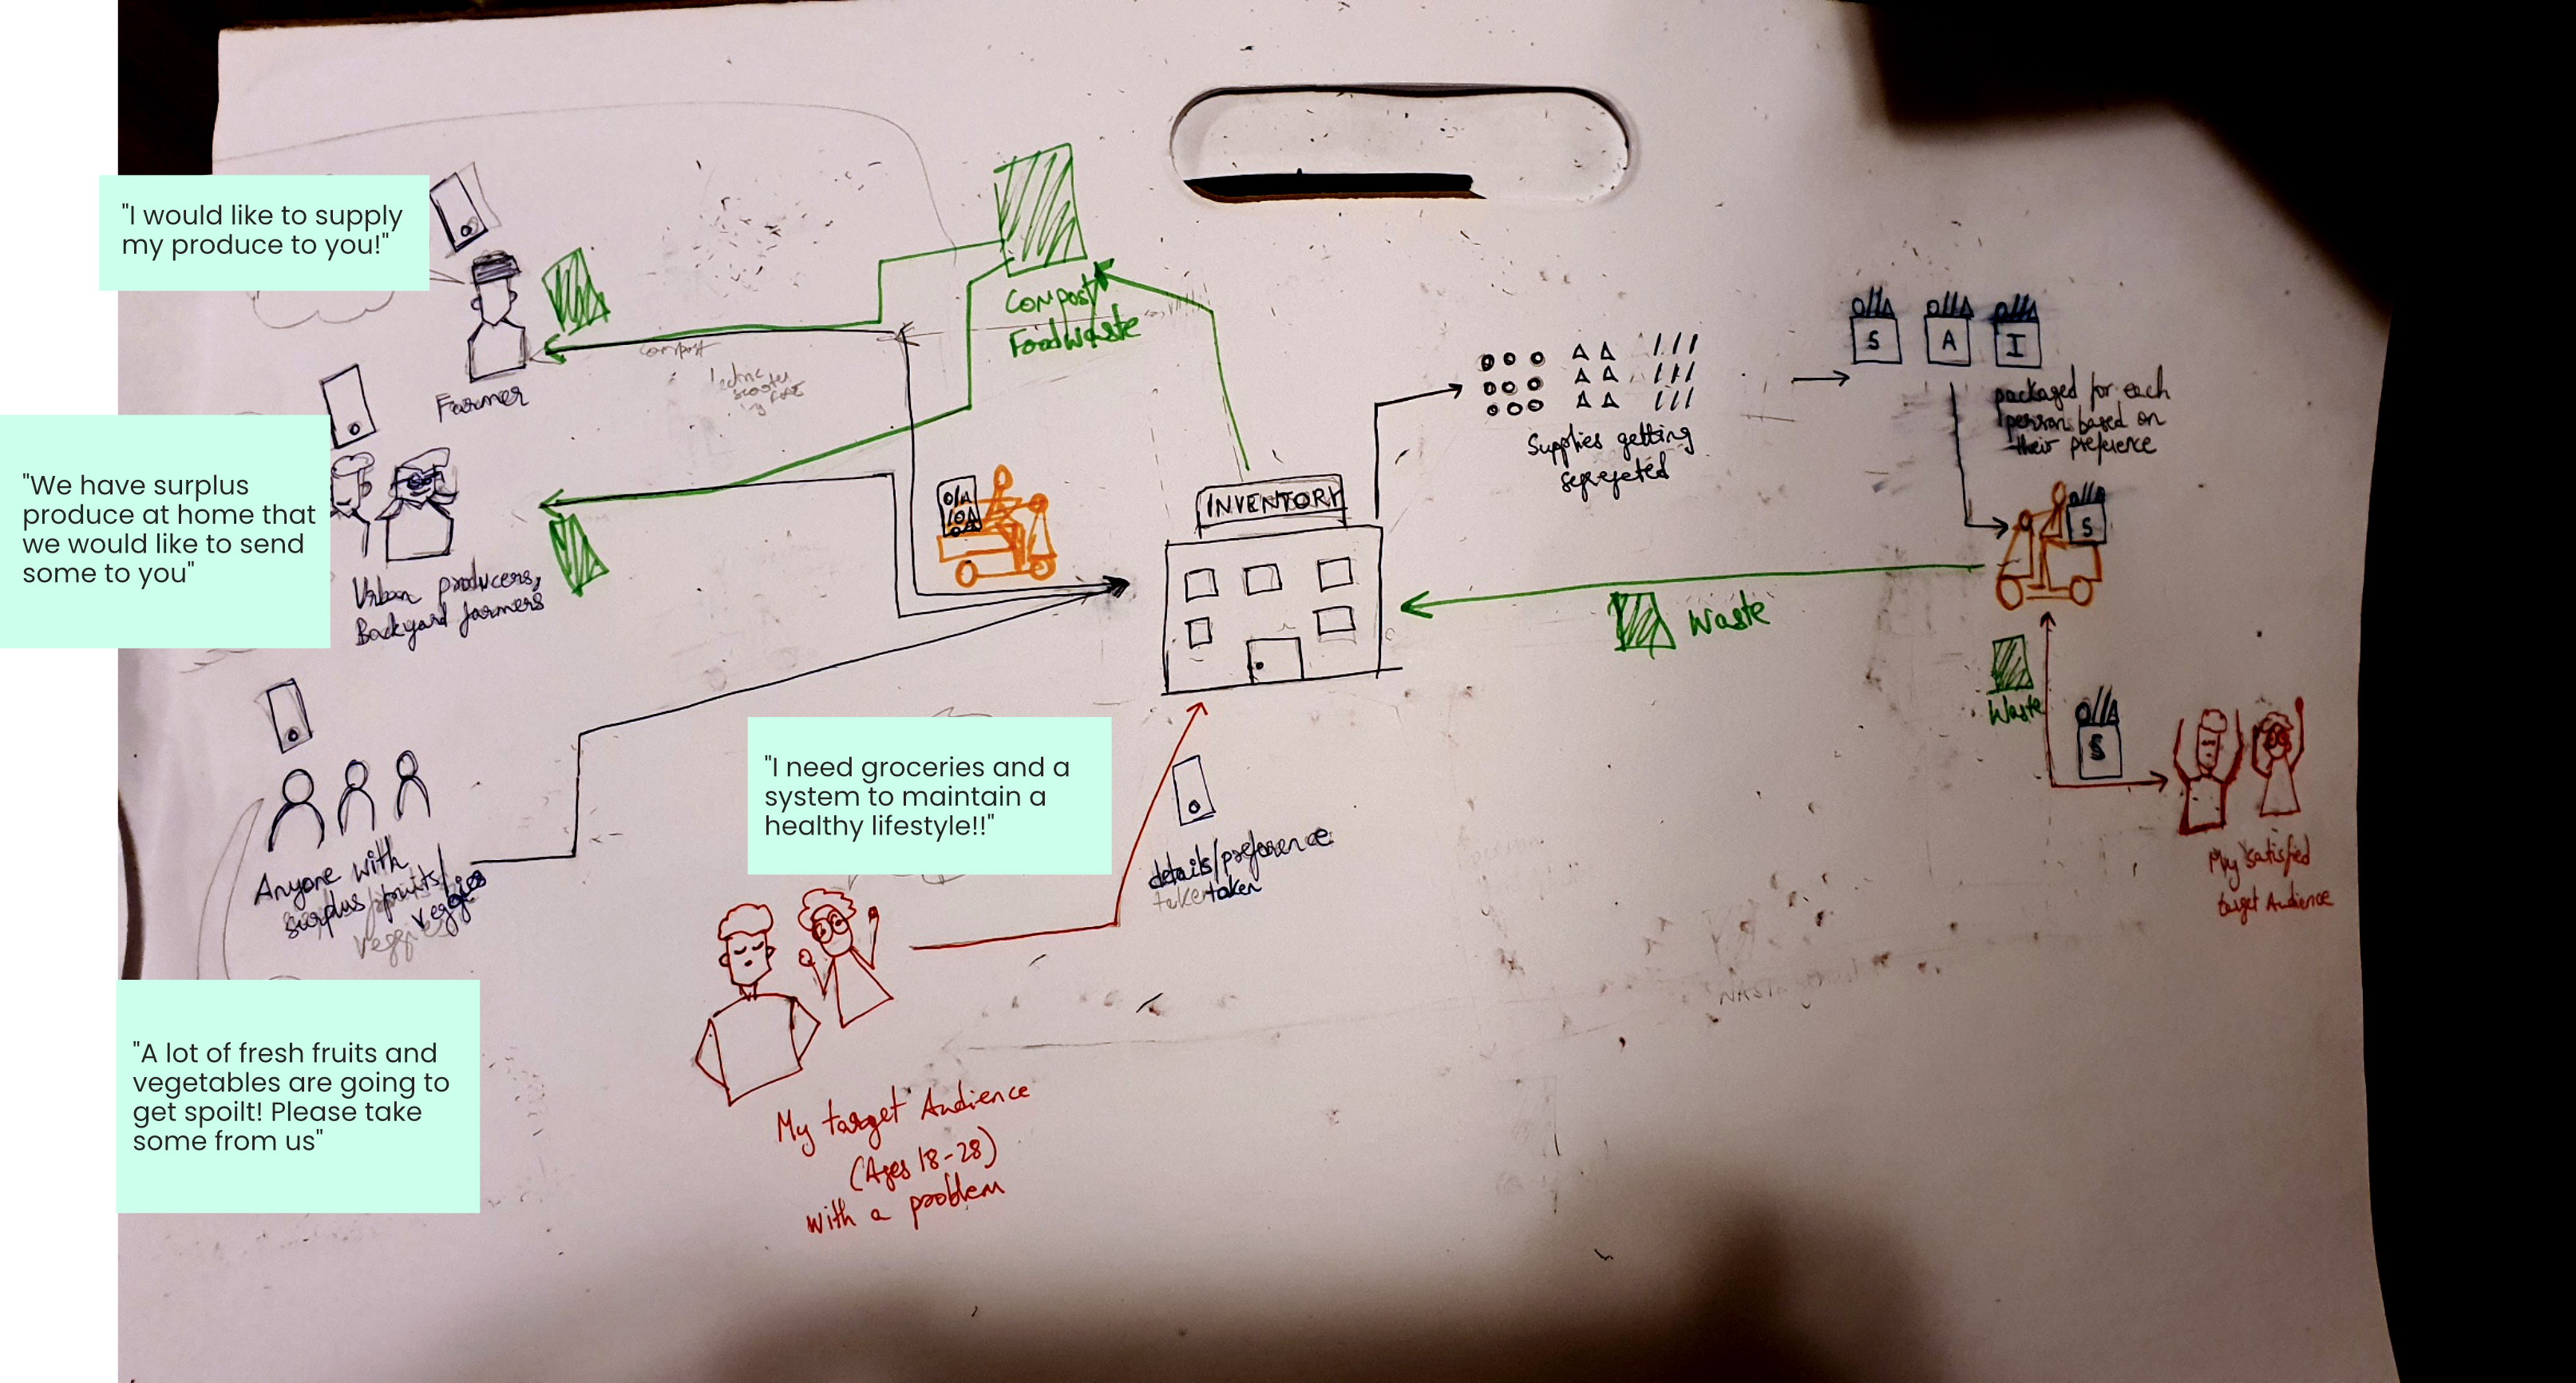 "I would like to supply
my produce to you!"
Farmer
compost
"We have surplus
produce at home that
we would like to send
some to you"
Urban producers,
Backyard farmers
Anyone with
surplus fruits/
veggies
veggies
"A lot of fresh fruits and
vegetables are going to
get spoilt! Please take
some from us"
Compost/
Food waste
INVENTORY
"I need groceries and a
system to maintain a
healthy lifestyle!!"
details/preference
taken
My target Audience
(Ages 18-28)
with a problem
Supplies getting
segregeted
S
A
I
packaged for each
person based on
their preference
S
Waste
Waste
S
My satisfied
target Audience